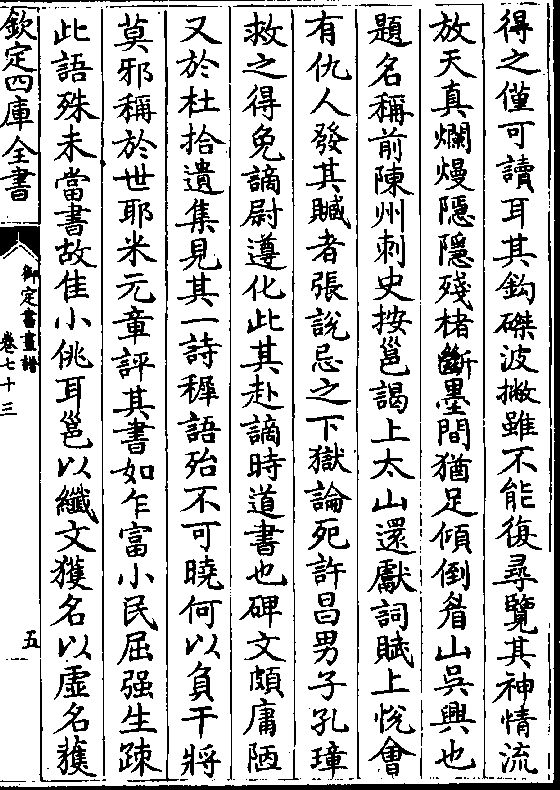 得之僅可讀耳其鈎磔波撇雖不能復尋覽其神情流
放天真爛熳隱隱殘楮斷墨間猶足傾倒眉山吳興也
題名稱前陳州刺史按邕謁上太山還獻詞賦上悅會
有仇人發其贓者張說忌之下獄論死許昌男子孔璋
救之得免謫尉遵化此其赴謫時道書也碑文頗庸陋
又於杜拾遺集見其一詩穉語殆不可曉何以負干將
莫邪稱於世耶米元章評其書如乍富小民屈强生疎
此語殊未當書故佳小佻耳邕以纖文獲名以虛名獲
欽定四庫全書
御定書畫譜
卷七十三
五